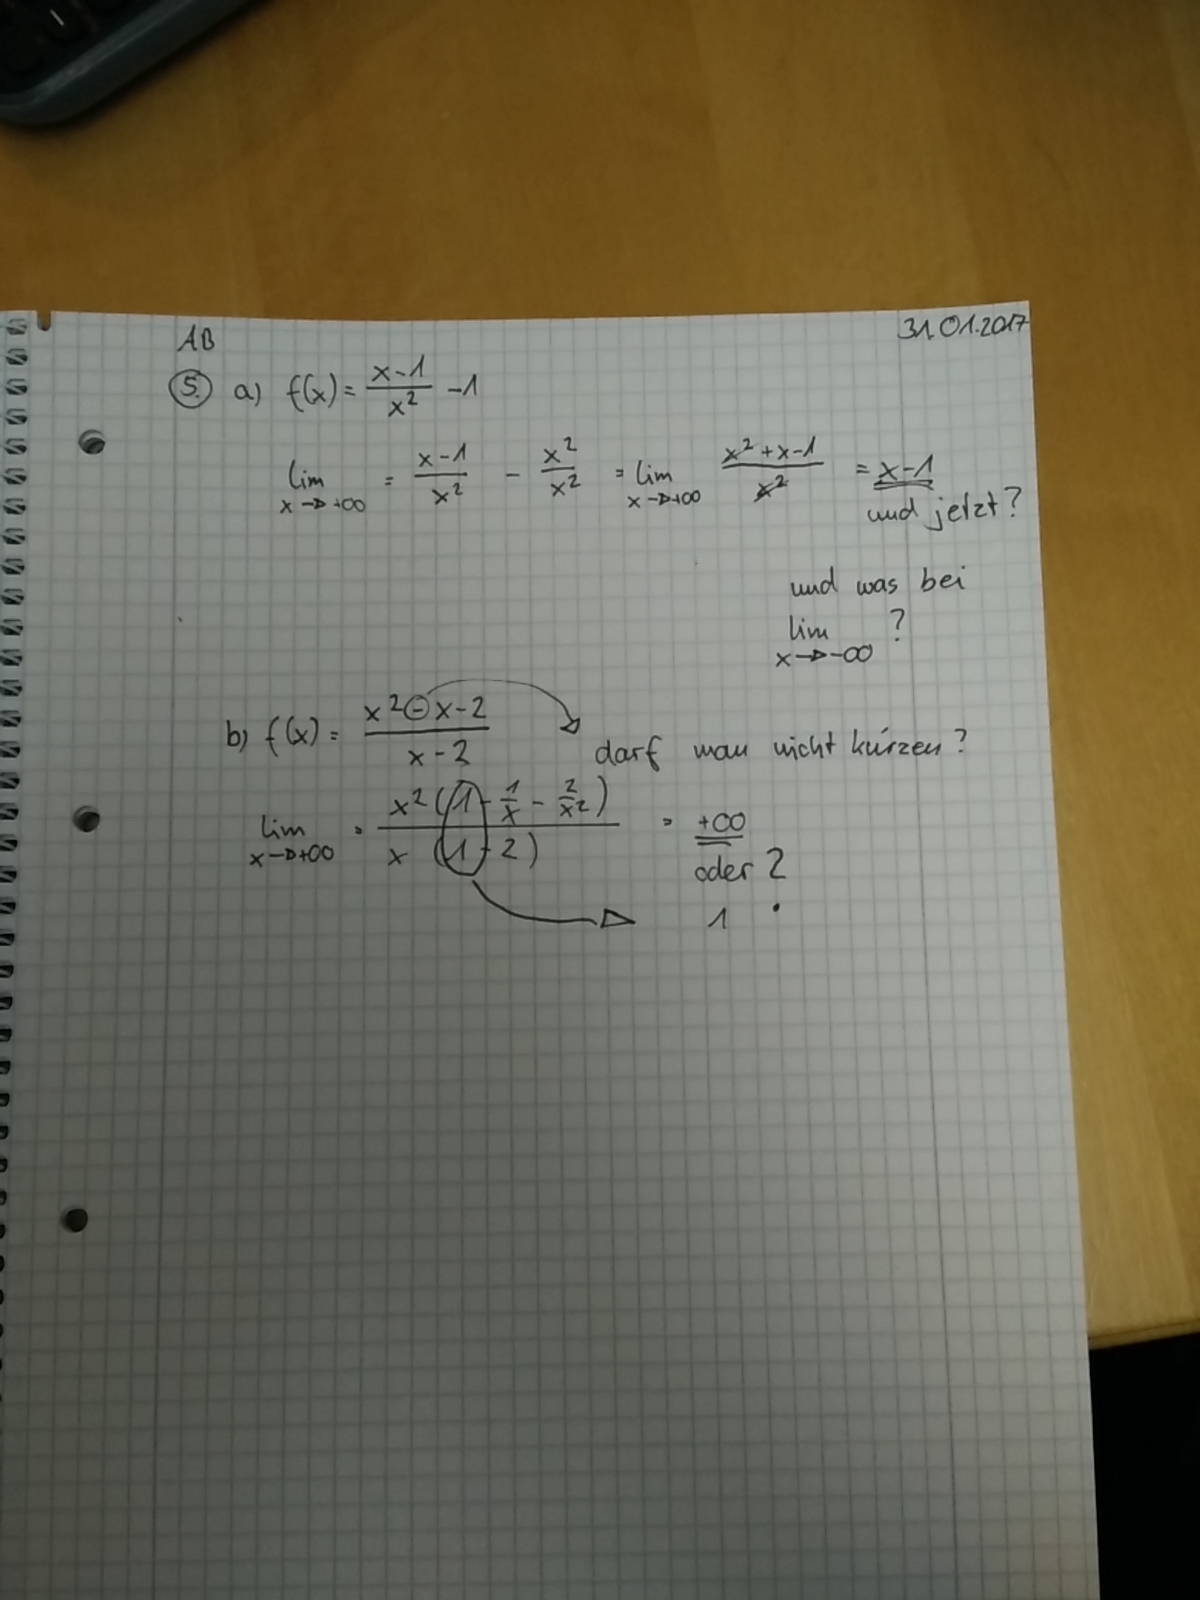 AB 31.01.2017
5. a) f(x) = (x-1)/x² -1
lim x→+∞ = (x-1)/x² - x²/x² = lim x→+∞ (x²+x-1)/x² = x-1
und jetzt?
und was bei
lim x→-∞ ?
b) f(x) = (x²-x-2)/(x-2) darf man nicht kürzen?
lim x→+∞ = x²(1-1/x-2/x²)/x(1-2) = +∞
oder ?
1